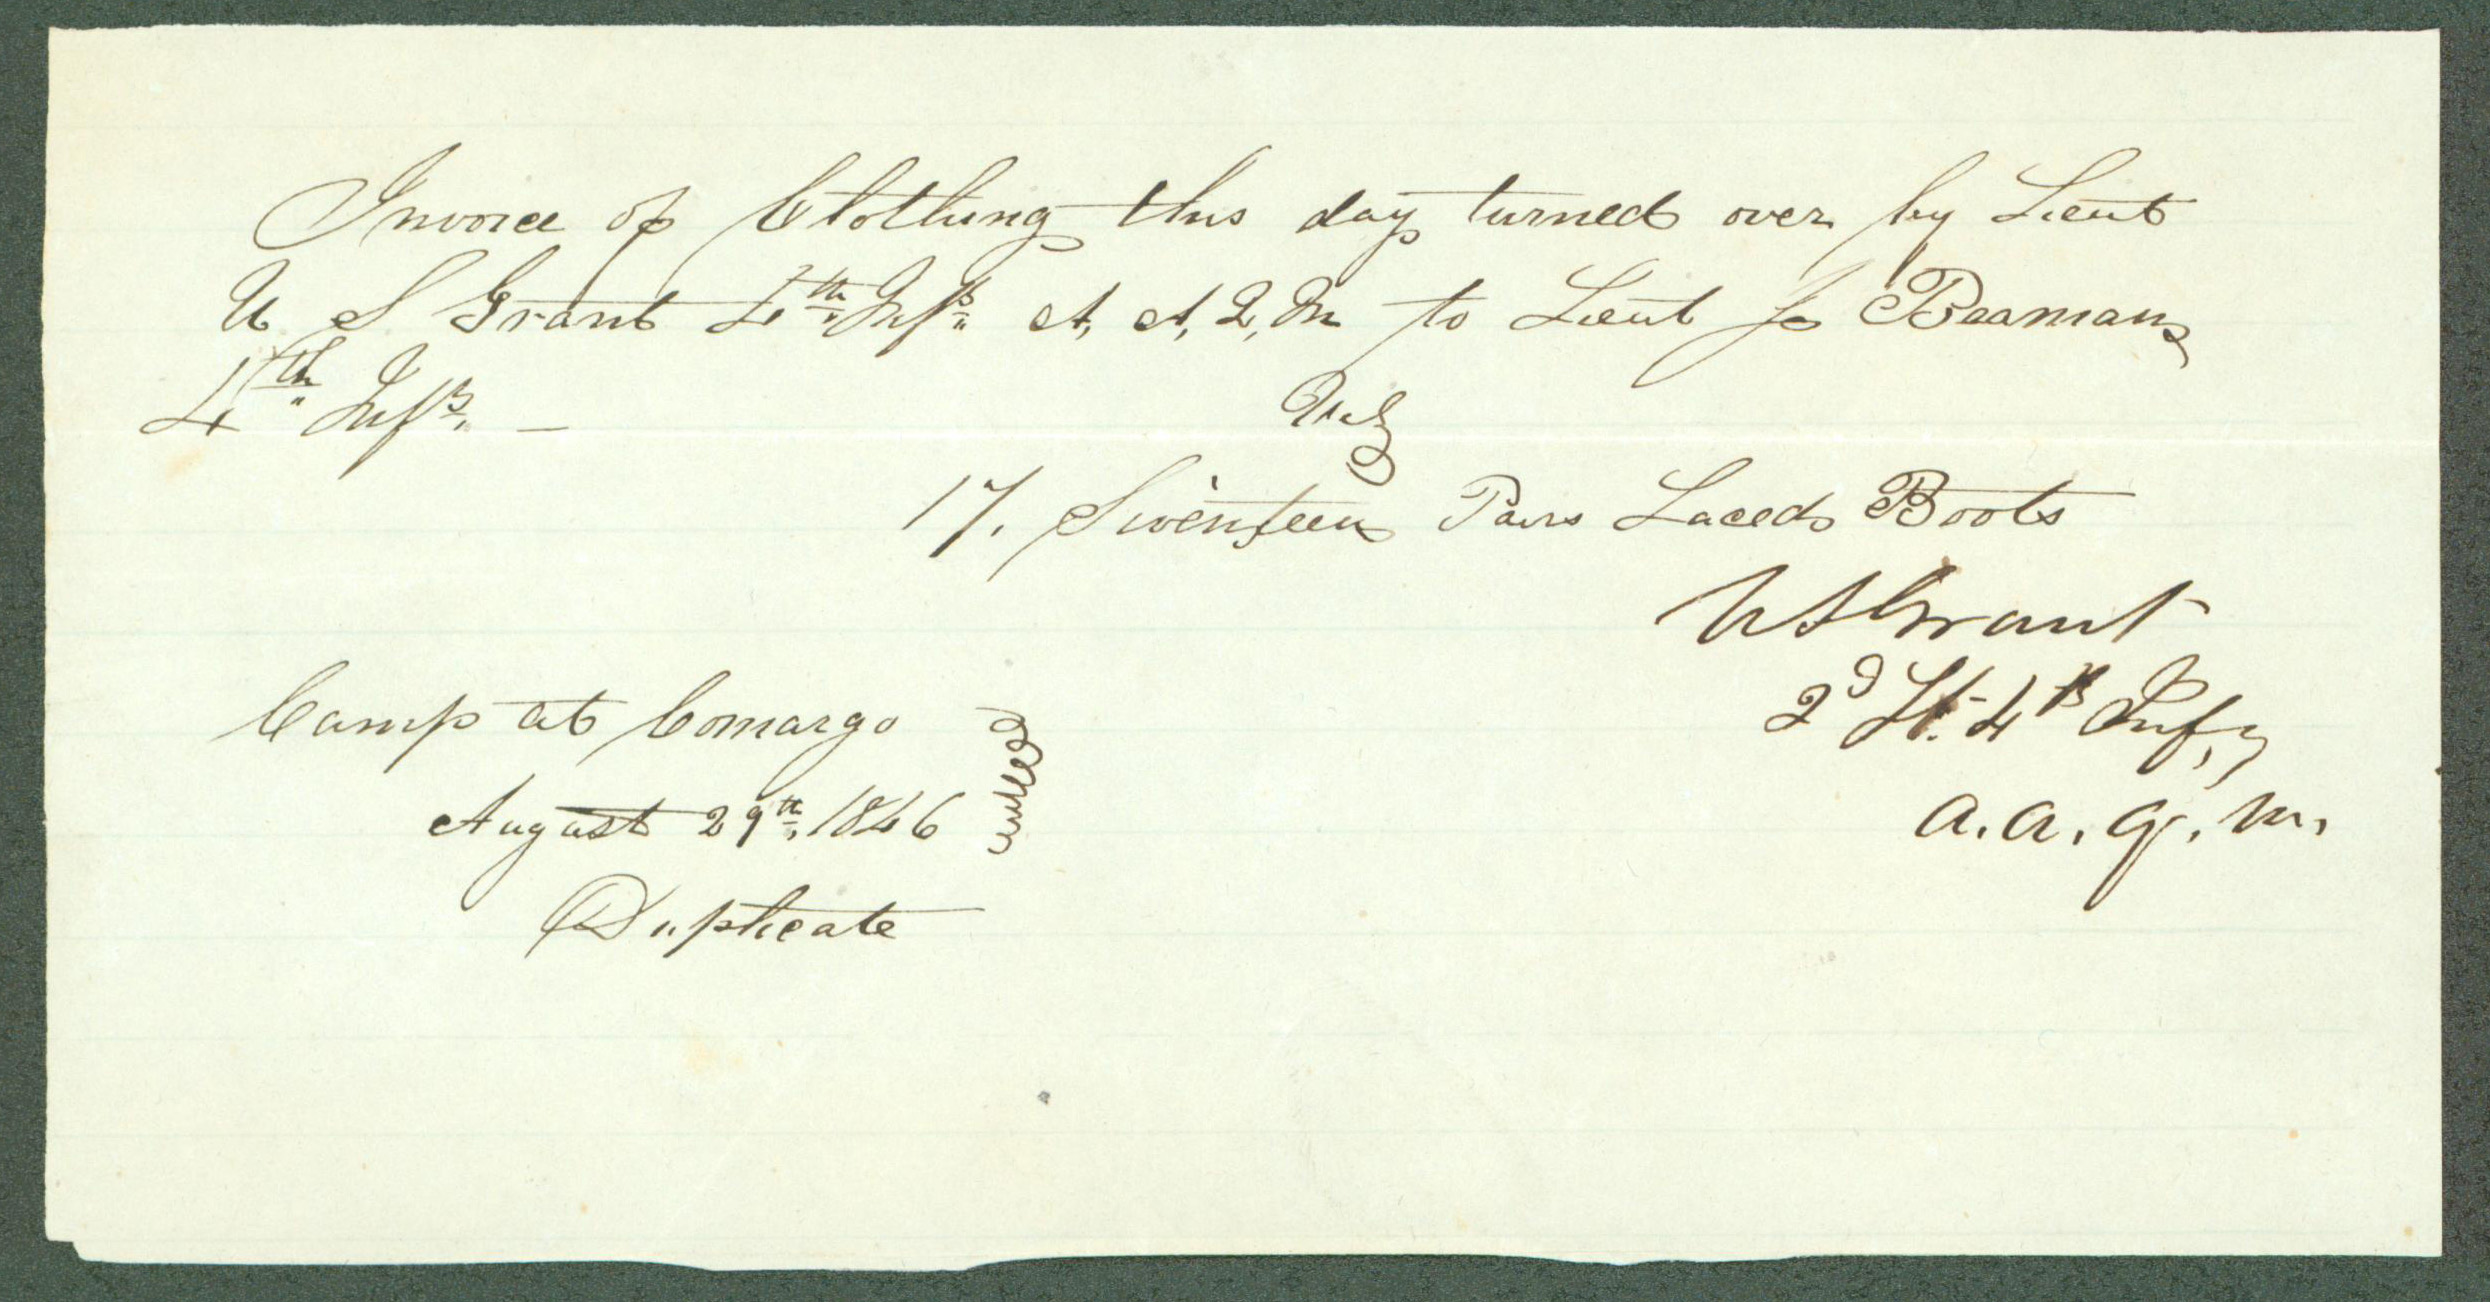 Invoice of Clothing this day turned over by Lieut
U S Grant 4th Infy A, A, Q, M to Lieut J Beaman
4th Infy. —
Viz
17. Seventeen Pairs Laced Boots
U S Grant
2d Lt. 4th Infy
A. A. Q. M.
Camp at Comargo
August 29th, 1846
Duplicate